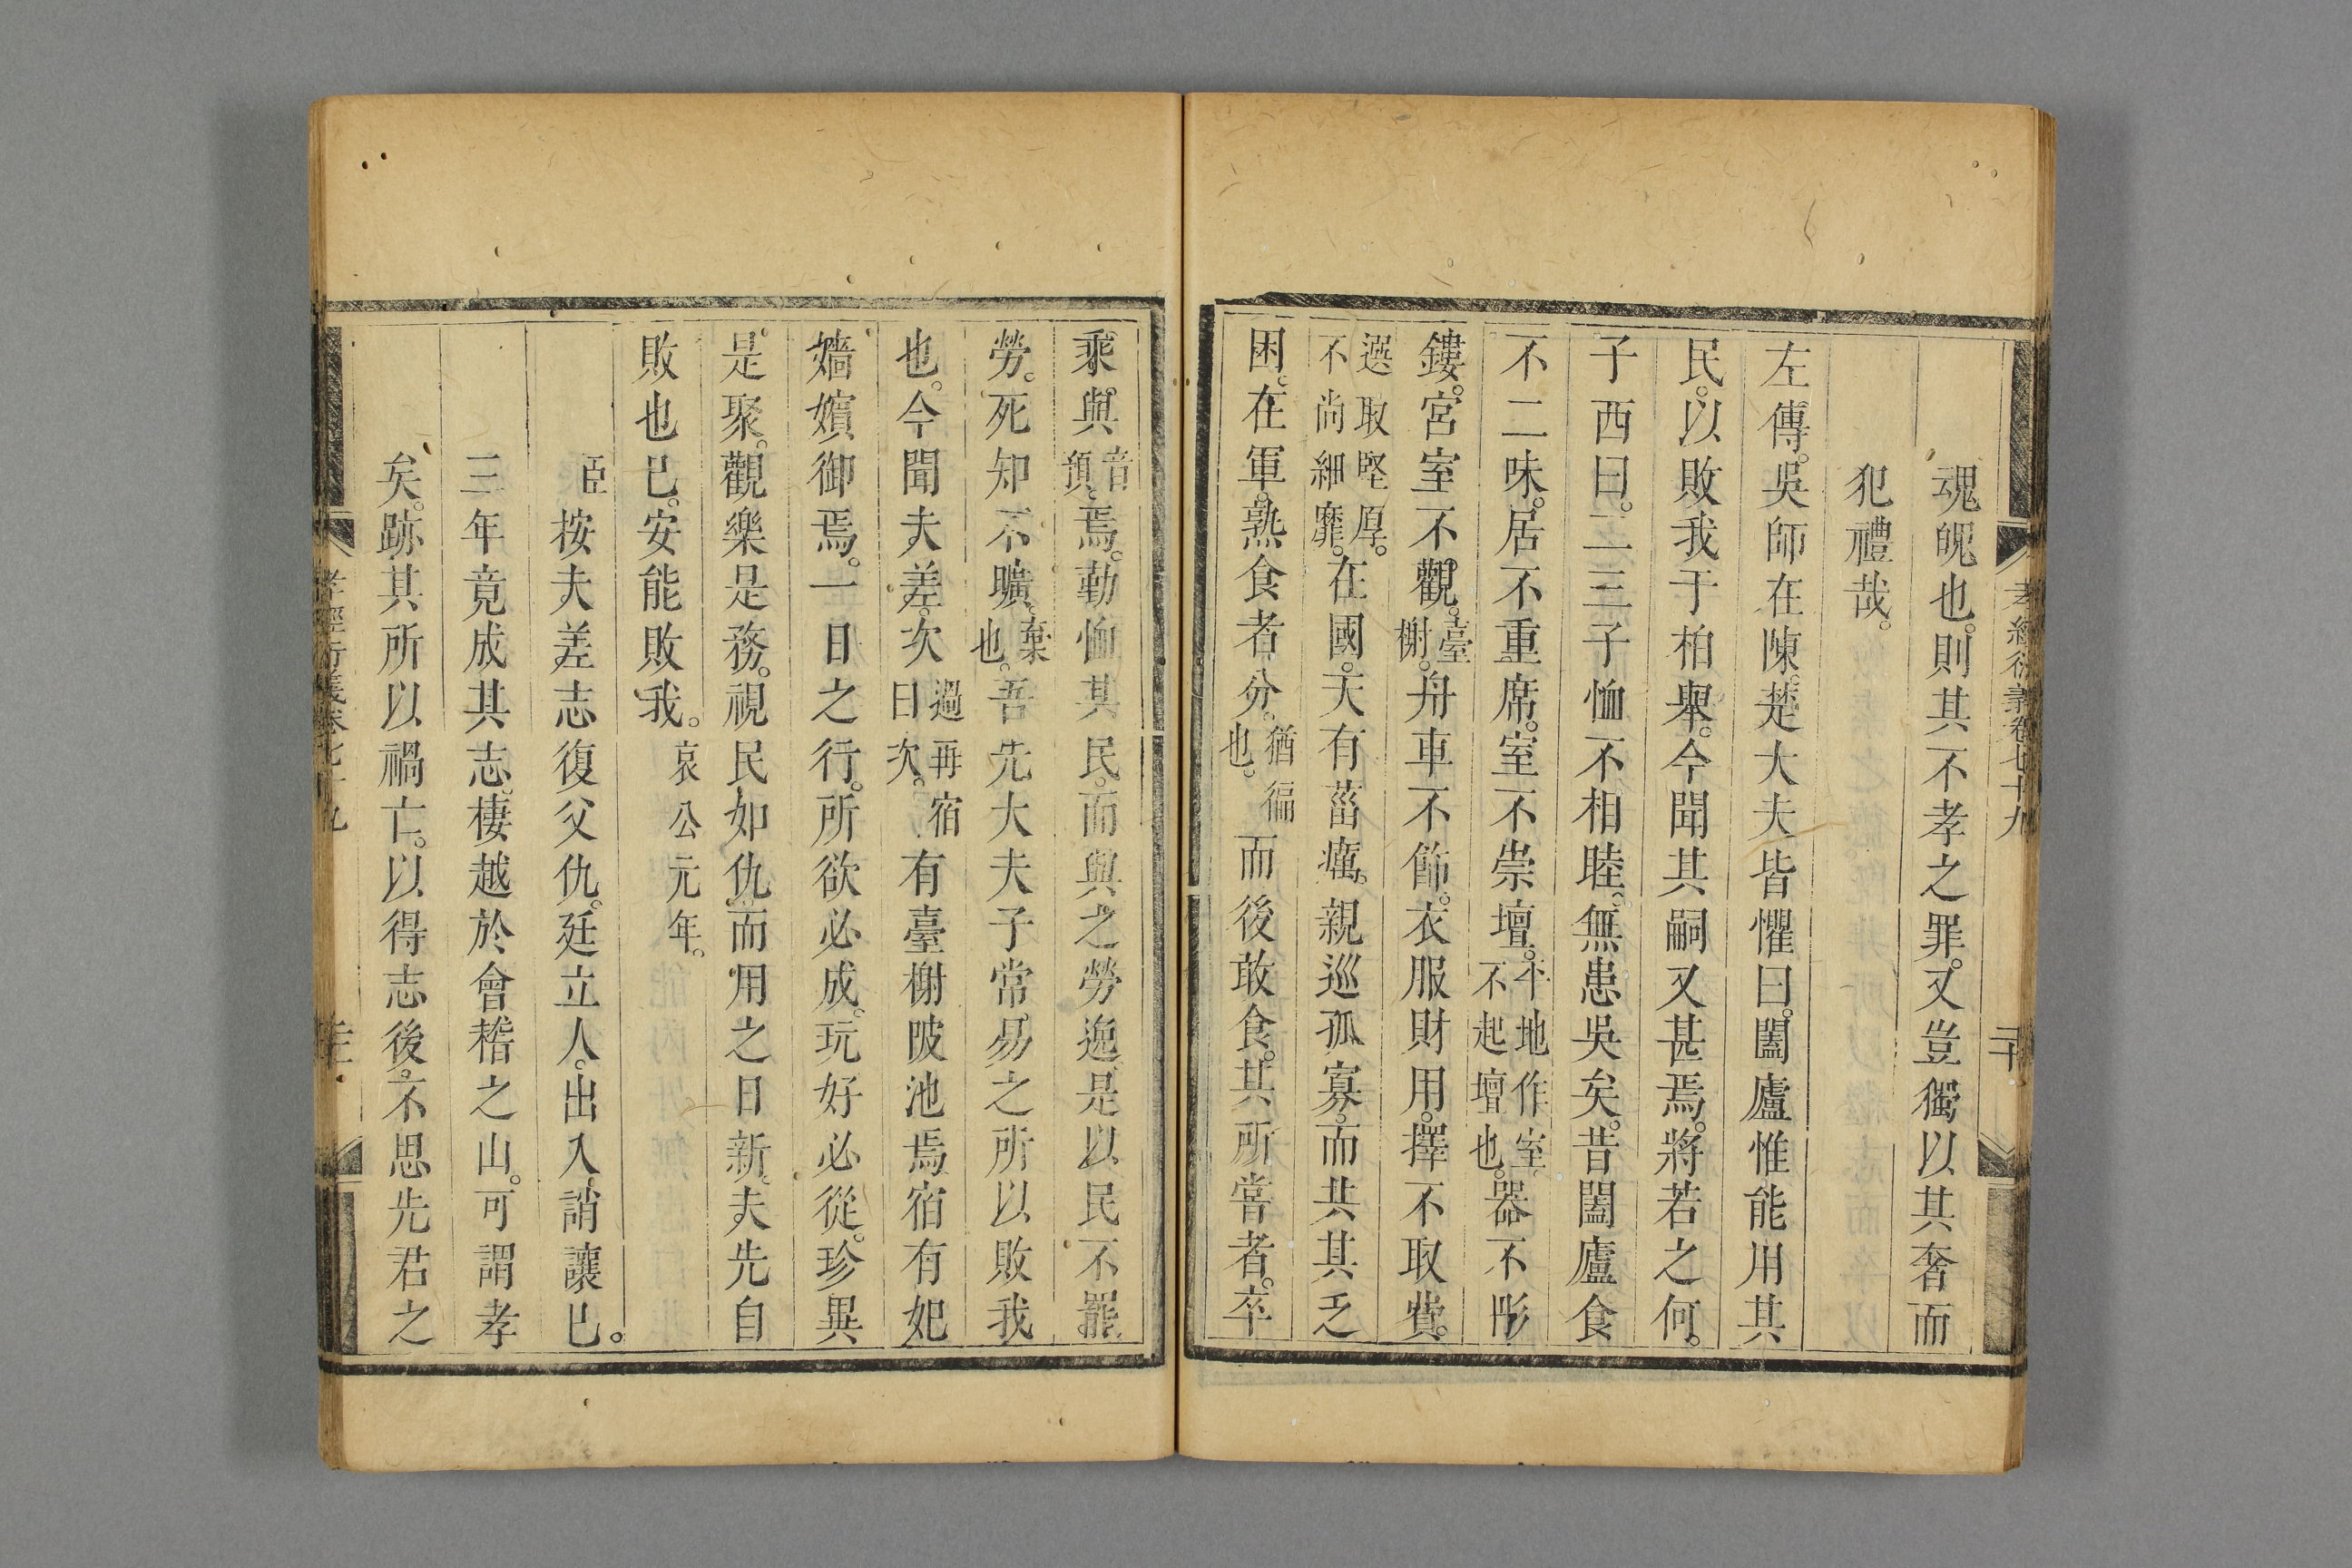 孝經衍義卷七十九
二十
魂魄也。則其不孝之罪。又豈獨以其奢而
犯禮哉。
左傳。吳師在陳。楚大夫皆懼曰。闔廬惟能用其
民。以敗我于柏舉。今聞其嗣又甚焉。將若之何。
子西曰。二三子恤不相睦。無患吳矣。昔闔廬食
不二味。居不重席。室不崇壇。平地作室。不起壇也。器不彤
鏤。宮室不觀。臺榭。舟車不飾。衣服財用。擇不取費。
選取堅厚。不尚細靡。在國。天有菑癘。親巡孤寡。而共其乏
困。在軍。熟食者分。猶徧也。而後敢食。其所嘗者。卒
乘與音預。焉。勤恤其民。而與之勞逸。是以民不罷
勞。死知不曠。棄也。吾先大夫子常易之。所以敗我
也。今聞夫差。次過再宿曰次。有臺榭陂池焉。宿有妃
嬙嬪御焉。一日之行。所欲必成。玩好必從。珍異
是聚。觀樂是務。視民如仇。而用之日新。夫先自
敗也已。安能敗我。哀公元年。
臣按夫差志復父仇。廷立人。出入誚讓已。
三年竟成其志。棲越於會稽之山。可謂孝
矣。跡其所以禍亡。以得志後。不思先君之
孝經衍義卷七十九